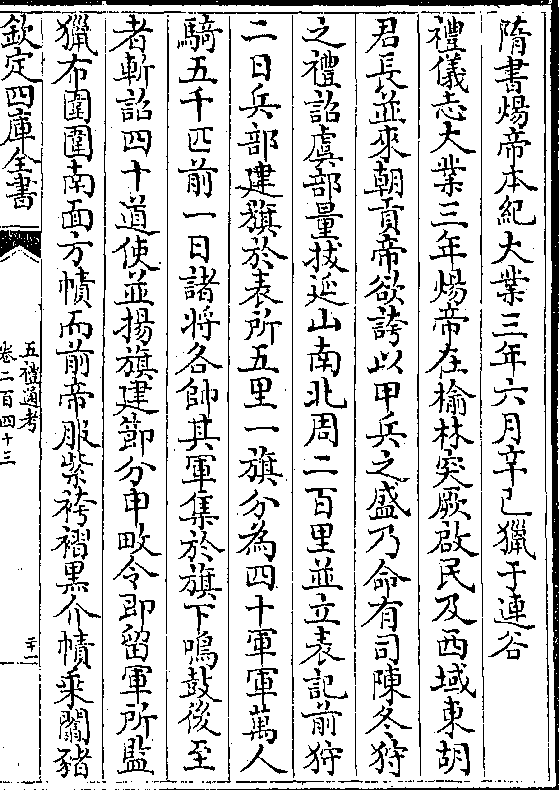 隋書煬帝本紀大業三年六月辛已獵于連谷
禮儀志大業三年煬帝在榆林突厥啟民及西域東胡
君長並來朝貢帝欲誇以甲兵之盛乃命有司陳冬狩
之禮詔虞部量拔延山南北周二百里並立表記前狩
二日兵部建旗於表所五里一旗分為四十軍軍萬人
騎五千匹前一日諸將各帥其軍集於旗下鳴鼓後至
者斬詔四十道使並揚旗建節分申畋令即留軍所監
獵布圍圍南面方幘而前帝服紫袴褶黑介幘乗闟豬
欽定四庫全書
五禮通考
卷二百四十三
二十一